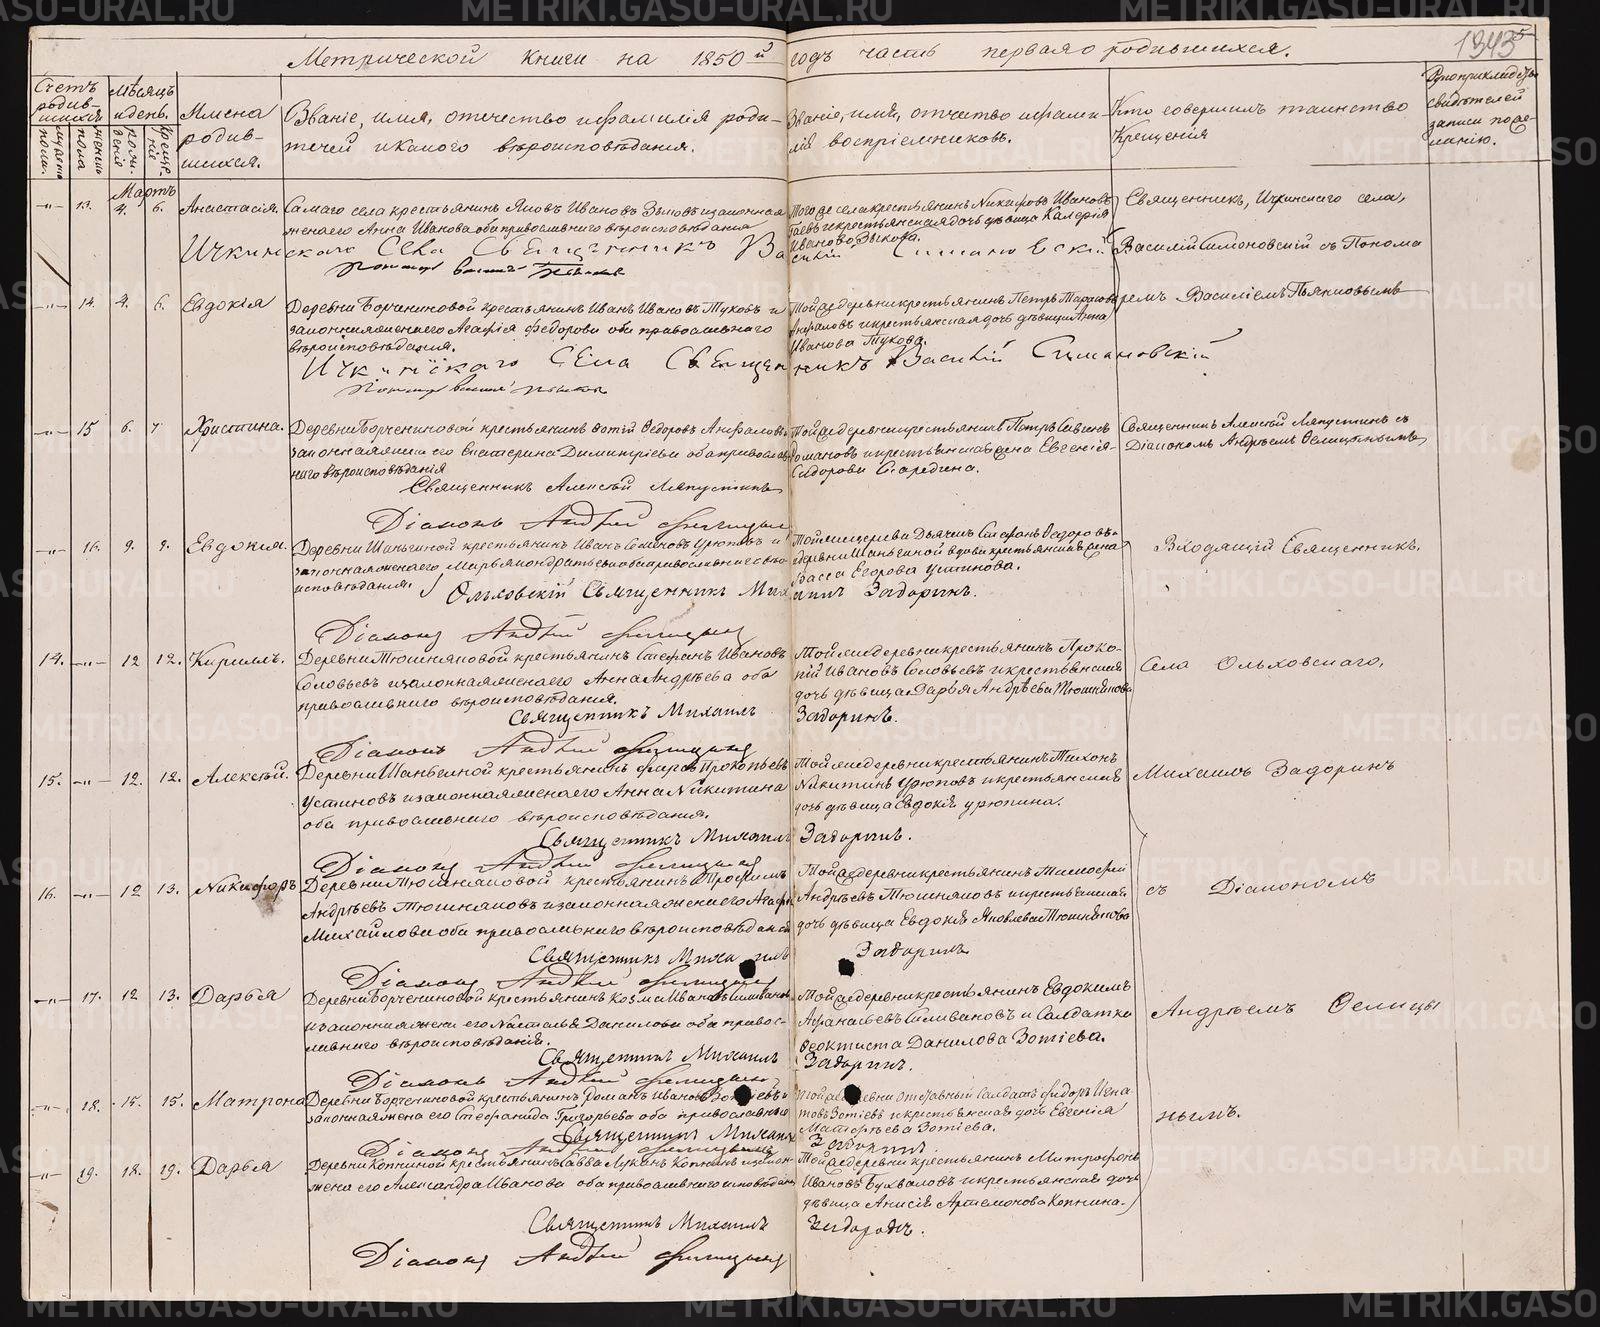 METRIKI.GASO-URAL.RU
Метрической книги на 1850й годъ часть первая о родившихся.
1343
Счетъ родившихся
мужеска пола.
женска пола
Мѣсяцъ и день.
рожденіе
крещеніе
Имена родившихся.
Званіе, имя, отчество и фамилія родителей и какого вѣроисповѣданія.
Званіе, имя, отчество и фамилія воспріемниковъ.
Кто совершилъ таинство Крещенія
Рукоприкладство свидѣтелей записи по желанію.
Мартъ
13. 4. 6. Анастасія.
Самаго села крестьянинъ Яковъ Ивановъ Зыковъ и законная
жена его Анна Иванова оба православнаго вѣроисповѣданія
Того же села крестьянинъ Никифоръ Ивановъ
и крестьянская дочь дѣвица Калерія
Иванова Зыкова.
Священникъ, Ичкинскаго села,
Василій Симоновскій съ Понома
Ичкинскаго Села Священникъ Василій Симановскій
14. 4. 6. Евдокія
Деревни Борчениновой крестьянинъ Иванъ Ивановъ Туковъ и
законная жена его Агафія Федорова оба православнаго
вѣроисповѣданія.
Той же деревни крестьянинъ Петръ Тарасовъ
Анфаловъ и крестьянская дочь дѣвица Анна
Иванова Тукова.
ремъ Василіемъ Пьянковымъ
Ичкинскаго Села Священникъ Василій Симановскій
15 6. 7 Христина.
Деревни Борчениновой крестьянинъ Фотій Федоровъ Анфаловъ и
законная жена его Екатерина Димитріева оба православ
наго вѣроисповѣданія
Той же деревни крестьянинъ Петръ Савинъ
Романовъ и крестьянская жена Евгенія
Сидорова Старедина.
Священникъ Алексѣй Ляпустинъ съ
Діакономъ Андреемъ Селицынымъ
Священникъ Алексѣй Ляпустинъ
Діаконъ Андрей
16. 9. 9. Евдокія.
Деревни Шаньгиной крестьянинъ Иванъ Семеновъ Урюповъ и
законная жена его Марья Кондратьева оба православнаго вѣро
исповѣданія.
деревни Шаньгиной вдова крестьянская жена
Васса Егорова Устинова.
Входящій Священникъ,
Ольховскій Священникъ Михаилъ Задоринъ.
Діаконъ Андрей
14. 12 12. Кириллъ.
Деревни Тюшняковой крестьянинъ Стефанъ Ивановъ
Соловьевъ и законная жена его Анна Андрѣева оба
православнаго вѣроисповѣданія.
Той же деревни крестьянинъ Проко-
пій Ивановъ Соловьевъ и крестьянская
дочь дѣвица Дарья Андрѣева Тюшнякова
Села Ольховскаго,
Священникъ Михаилъ Задоринъ.
Діаконъ Андрей
15. 12. 12. Алексѣй.
Деревни Шаньгиной крестьянинъ Фирсъ Прокопьевъ
Устиновъ и законная жена его Анна Никитина
оба православнаго вѣроисповѣданія.
Той же деревни крестьянинъ Тихонъ
Никитинъ Урюповъ и крестьянская
дочь дѣвица Евдокія Урюпина.
Михаилъ Задоринъ
Священникъ Михаилъ Задоринъ.
Діаконъ Андрей
16. 12 13. Никифоръ
Деревни Тюшняковой крестьянинъ Трофимъ
Андрѣевъ Тюшняковъ и законная жена его Агафья
Михайлова оба православнаго вѣроисповѣданія
Той же деревни крестьянинъ Тимофей
Андрѣевъ Тюшняковъ и крестьянская
дочь дѣвица Евдокія Яковлева Тюшнякова
съ Діакономъ
Священникъ Михаилъ Задоринъ
Діаконъ Андрей
17. 12 13. Дарья
Деревни Борчениновой крестьянинъ Козма Ивановъ Силивановъ
и законная жена его Наталья Данилова оба правос-
лавнаго вѣроисповѣданія.
Той же деревни крестьянинъ Евдокимъ
Афанасьевъ Силивановъ и Салдатка
Феоктиста Данилова Зотіева.
Андрѣемъ Селицы
Священникъ Михаилъ Задоринъ.
Діаконъ Андрей
18. 15. 15. Матрона
Деревни Борчениновой крестьянинъ Романъ Ивановъ Зотіевъ и
законная жена его Стефанида Григорьева оба православные
Той же деревни отставный Салдатъ Фидоръ Игна
товъ Зотіевъ и крестьянская дочь Евгенія
Матфѣева Зотіева.
нымъ.
Священникъ Михаилъ Задоринъ
Діаконъ Андрей
19. 18. 19. Дарья
Деревни Копниной крестьянинъ Савва Лукинъ Копнинъ и закон
жена его Александра Иванова оба православнаго исповѣдан
Той же деревни крестьянинъ Митрофанъ
Ивановъ Бухваловъ и крестьянская дочь
дѣвица Анисія Артемонова Копнина.
Священникъ Михаилъ Задоринъ.
Діаконъ Андрей